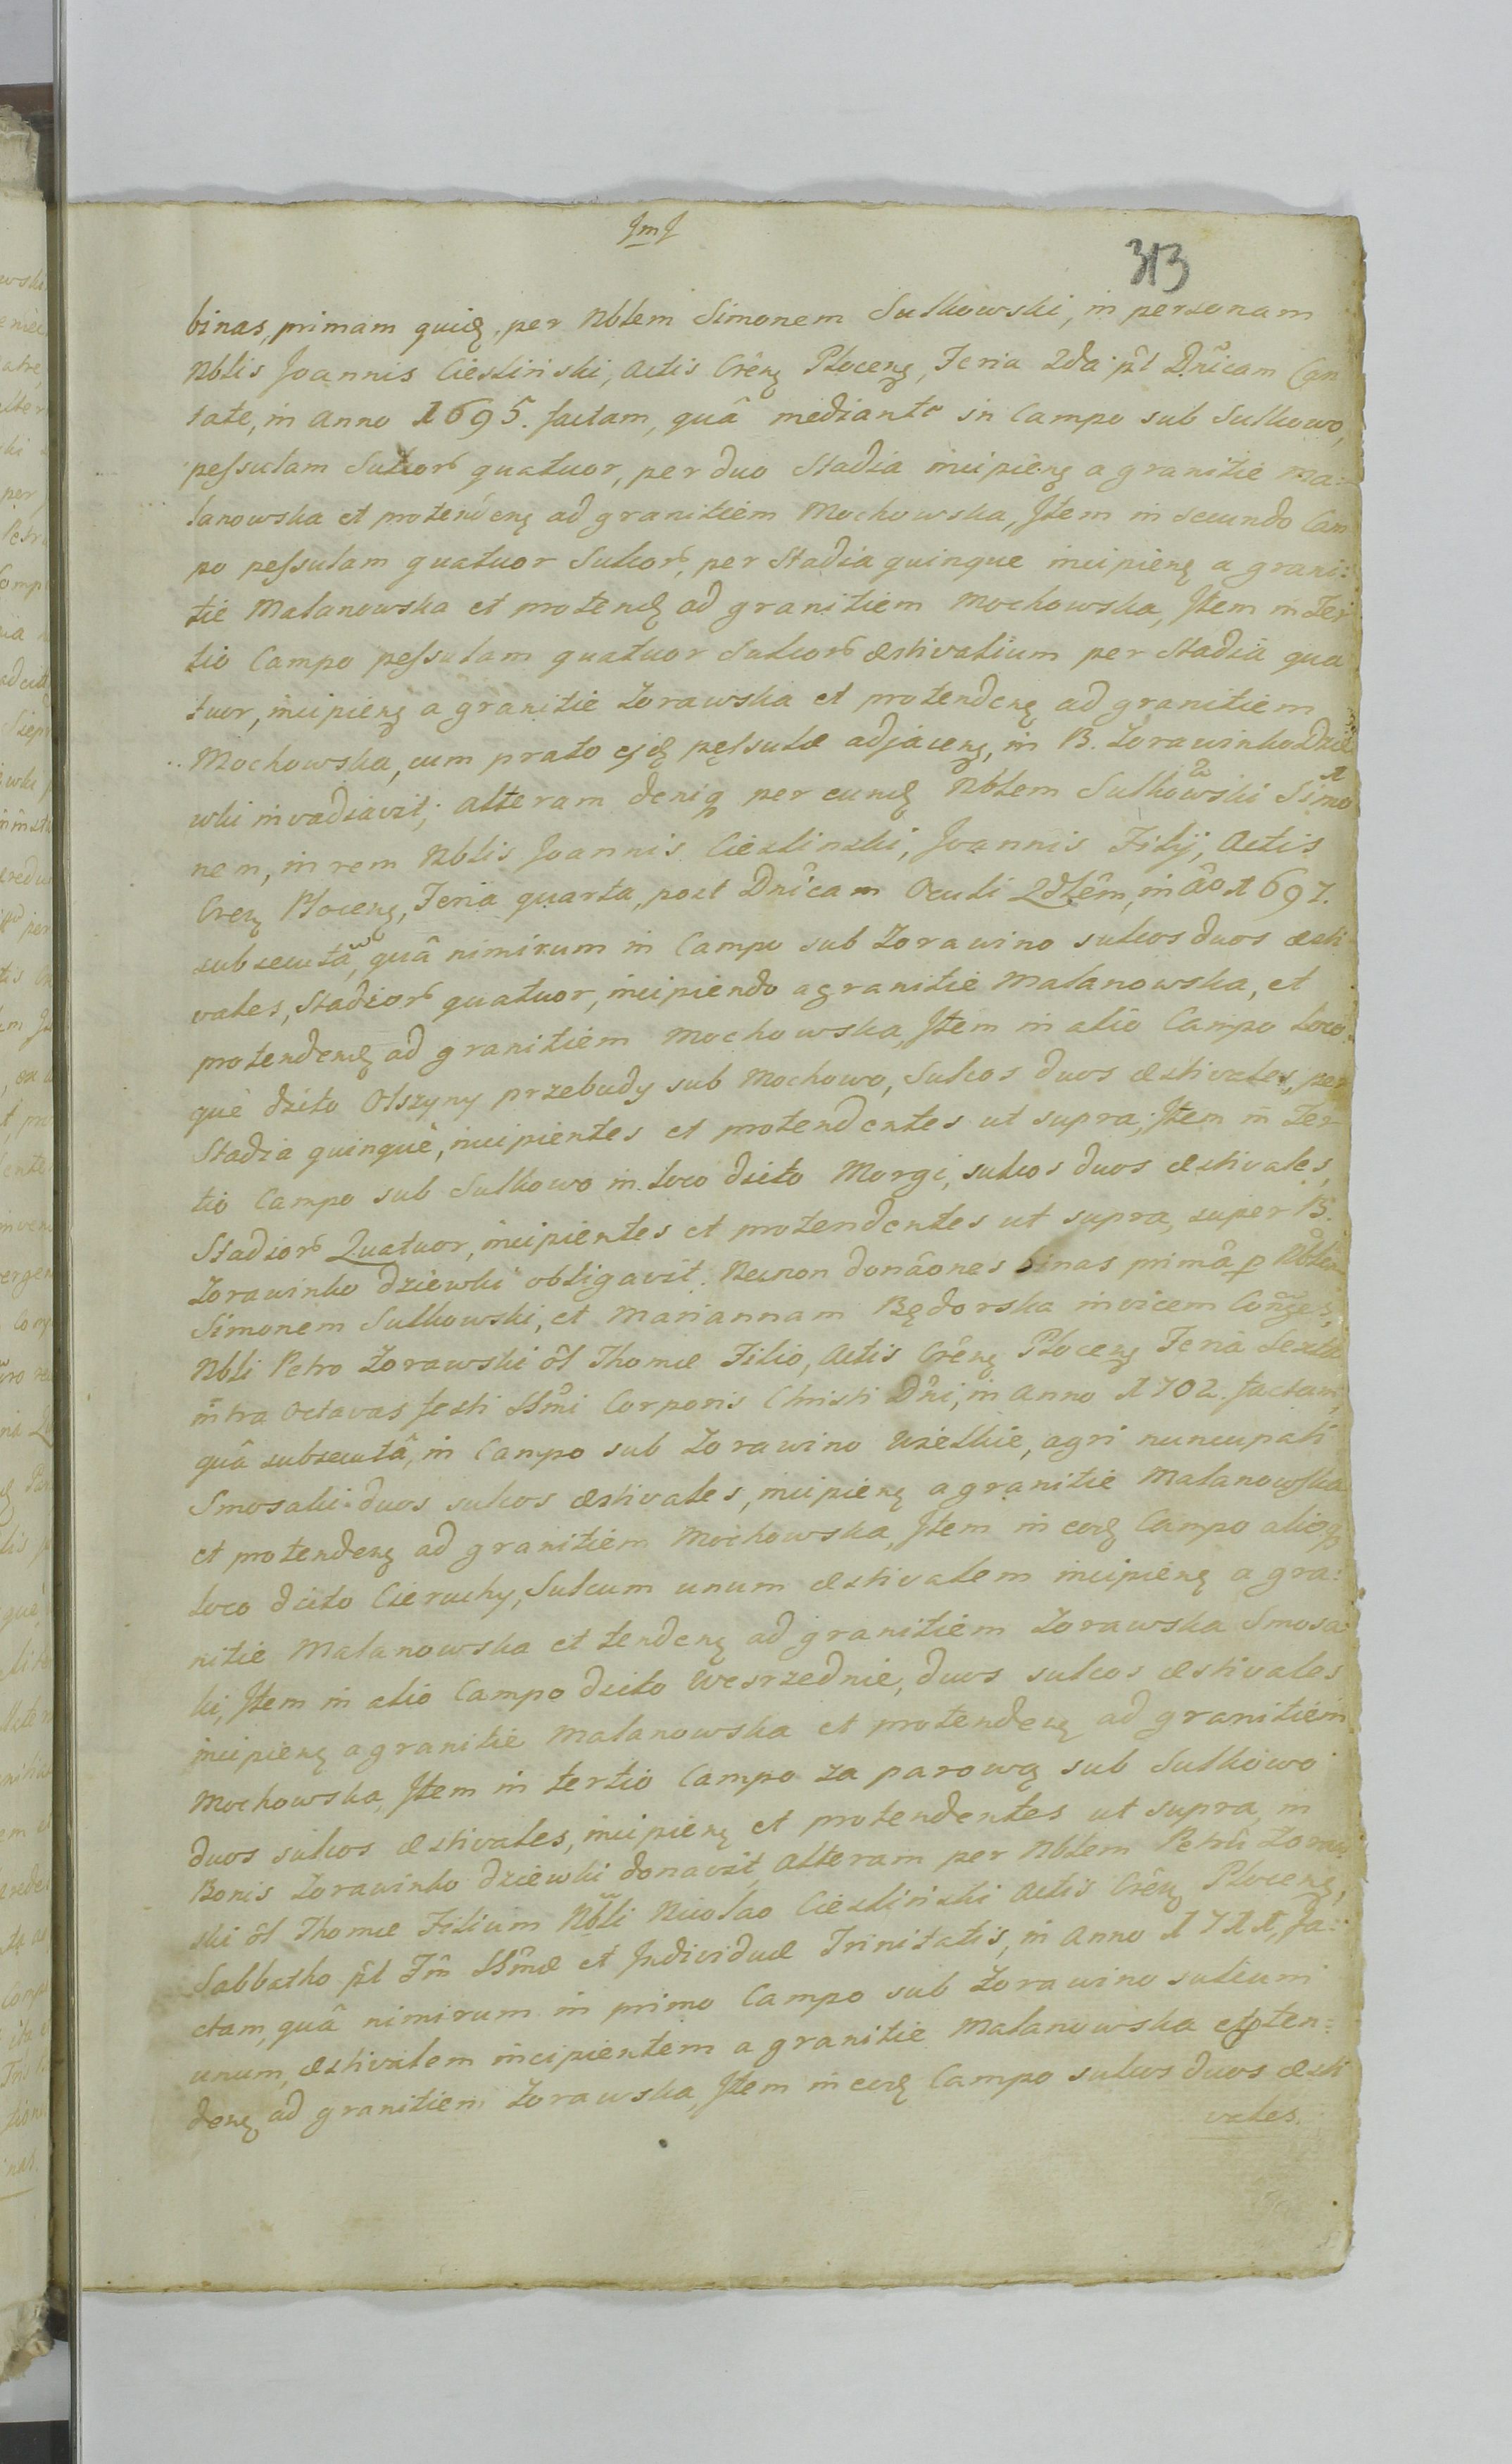 JmJ
313
binas, primam quię, per Nblem Simonem Sulkowski, in personam
Nblis Joannis Ciesliński, Actis Crênę Płocenę, Feria 2da pt̂ Dnĩcam Can
tate, in Anno 1695. factam, quâ mediante in Campo sub Sulkowo,
pessulam Sulcorʼ quatuor, per duo Stadia incipienę a granitie Ma:
lanowska et protendenę ad granitiem Mochowska, Jtem in secundo Cam
po pessulam quatuor Sulcorʼ, per Stadia quinque incipienę a grani:
tie Malanowska et protendę ad granitiem Mochowska, Jtem in Ter
tio Campo pessulam quatuor Sulcorʼ æstivalium per Stadia qua
tuor, incipienę a granitie Zorawska et protendenę ad granitiem
Mochowska, cum prato ejdę pessulæ adjacenę, in B. Zorawinko Dzie
wki invadiavit; alteram deniq per eundę Nblem Sulkowski 2 Simo 1
nem, in rem Nblis Joannis Ciesliński, Joannis Filij, Actis
Crenę Płocenę, Feria quarta, post Dnĩcam Oculi Qdlêm, in Âo 1697.
subsecutâ, quâ nimirum in Campo sub Zorawino sulcos duos æsti
vales, Stadiorʼ quatuor, incipiendo a granitie Malanowska, et
protendendę ad granitiem Mochowska, Jtem in alio Campo Loco
què dicto Olszyny przebudy sub Mochowo, Sulcos duos æstivales, per
Stadia quinquè, incipientes et protendentes ut supra; Jtem in Ter
tio Campo sub Sulkowo in Loco dicto Morgi, sulcos duos æstivales,
Stadiorʼ Quatuor, incipientes et protendentes ut supra, super B.
Zorawinko dziewki obligavit. Necnon donâones binas primâ p Nblem
Simonem Sulkowski, et Mariannam Będorska invicem Cônges,
Nbli Petro Zorawski ôl Thomæ Filio, Actis Crênę Płocenę Feria Sexta
intra Octavas festi SSmî Corporis Christi Dnî, in Anno 1702. factam,
quâ subsecutâ, in Campo sub Zorawino Wielkie, agri nuncupati
Smosaki duos sulcos æstivales, incipienę a granitie Malanowska
et protendenę ad granitiem Mochowska, Jtem in eodę Campo alioq
loco dicto Cieruchy, Sulcum unum æstivalem incipienę a gra:
nitie Malanowska et tendenę ad granitiem Zorawska Smosa:
ki, Jtem in alio Campo dicto Wesrzednie, duos sulcos æstivales
incipienę a granitie Malanowska et protendenę ad granitiem
Mochowska, Jtem in tertio Campo za parową sub Sulkowo
duos sulcos æstivales, incipienę et protendentes ut supra, in
Bonis Zorawinko dziewki donavit, alteram per Nblem Petrû Zoraw
ski ôl Thomæ Filium Nbli Nicolao Ciesliński Actis Crênę Płocenę,
Sabbatho pt̂ Fm̂ SSmæ et Jndividuæ Trinitatis, in Anno 1711, fa:
ctam, quâ nimirum in primo Campo sub Zorawino sulcum
unum, æstivalem incipientem a granitie Malanowska et pten:
denę ad granitiem Zorawska, Jtem in eodę Campo sulcos duos æsti
vales.